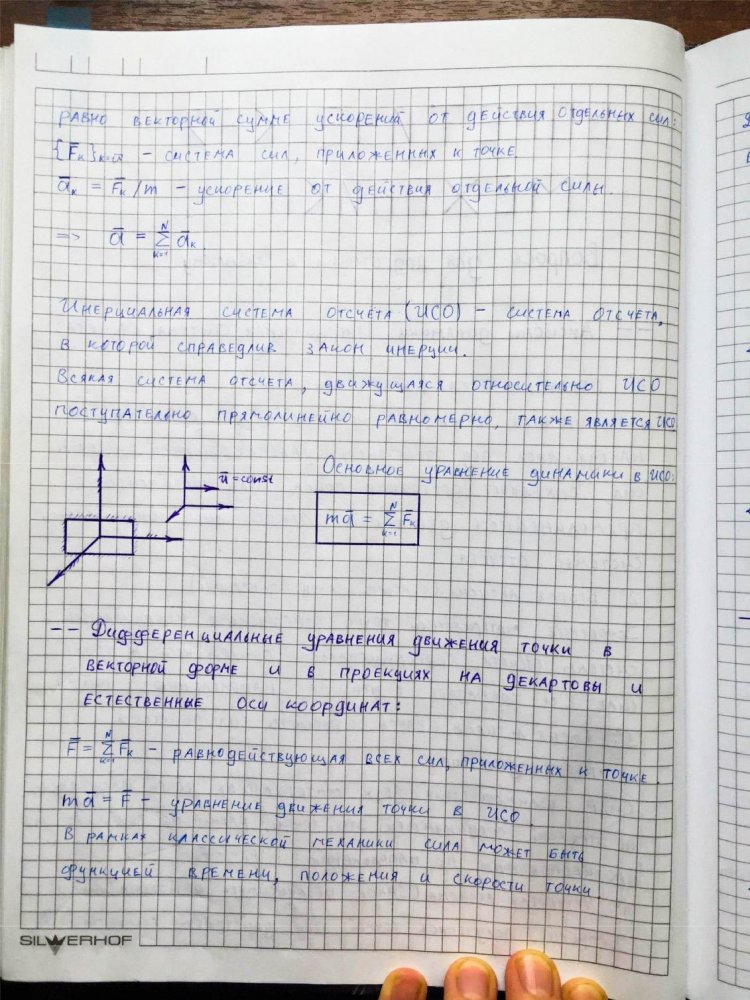 равно векторной сумме ускорений от действия отдельных сил:
{F̅ₖ} – система сил, приложенных к точке
a̅ₖ = F̅ₖ/m – ускорение от действия отдельной силы.
=> a̅ = ∑ₖ₌₁ᴺ a̅ₖ
Инерциальная система отсчета (ИСО) – система отсчета,
в которой справедлив закон инерции.
Всякая система отсчета, движущаяся относительно ИСО
поступательно прямолинейно равномерно, также является ИСО
Основное уравнение динамики в ИСО:
u̅ = const
ma̅ = ∑ₖ₌₁ᴺ F̅ₖ
-- Дифференциальные уравнения движения точки в
векторной форме и в проекциях на декартовы и
естественные оси координат:
F̅ = ∑ₖ₌₁ᴺ F̅ₖ – равнодействующая всех сил, приложенных к точке.
ma̅ = F̅ – уравнение движения точки в ИСО.
В рамках классической механики сила может быть
функцией времени, положения и скорости точки.
SILWERHOF